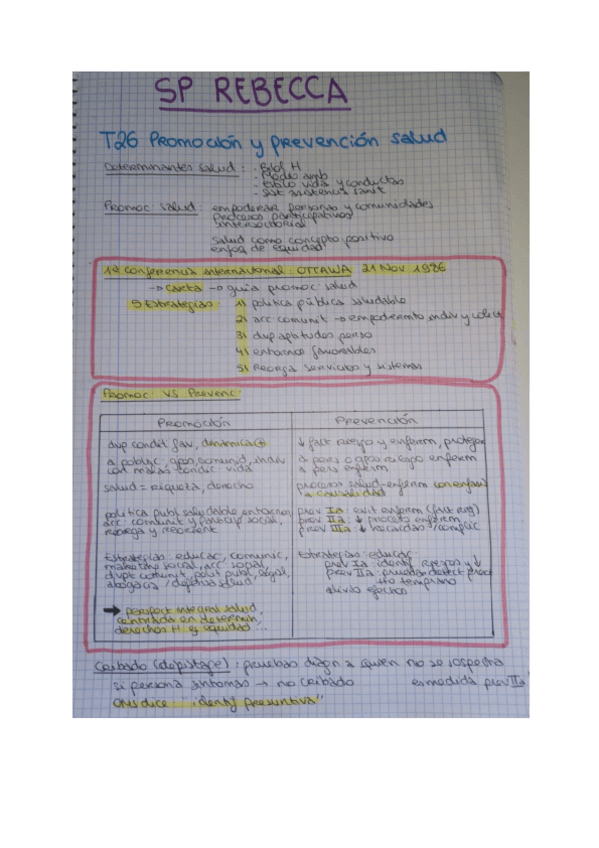 SP REBECCA
T26 Promoción y prevención salud
Determinantes salud: - Biol H
- Medio amb
- Estilo vida y conductas
- Sist asistencia sanit
Promoc salud: empoderar personas y comunidades
procesos participativos
intersectorial
salud como concepto positivo
enfoq de equidad
1ª Conferencia internacional: OTTAWA 21 Nov 1986
→ Carta → guía promoc salud
5 Estrategias: 1) política pública saludable
2) acc comunit → empoderamto indiv y colect
3) dvp aptitudes perso
4) entornos favorables
5) Reorga servicios y sistemas
Promoc vs Prevenc:
Promoción
dvp condit fav, dinámica +
a poblac, gpos, comunid, indiv
con malas condic vida
salud = riqueza, derecho
política publ saludable entornos,
acc comunit y particip social,
reorega y reorient
Estrategias: educac, comunic,
marketing social, acc social,
dvpt comunit, polit publ, legal,
abogacía / defensa salud
→ perspect integral salud,
centrada en determin,
derechos H es equidad ...
Prevención
↓ fact riesgo y enferm, proteger
a pers o gpo riesgo enferm
a pers enferm
proceso salud-enferm con enfasis
a causalidad
prev Ia: evit enferm (fact rieg)
prev IIa: ↓ proceso enferm
prev IIIa: ↓ recaidas /complic
Estrategias: educac
prev Ia: identif riesgos y ↓
prev IIa: pruebas detect preco
tto temprano
alivio efectos
Cribado (depistage): pruebas diagn a quien no se sospecha
si persona síntomas → no cribado es medida prev IIa
OMS dice: "identif presuntiva"